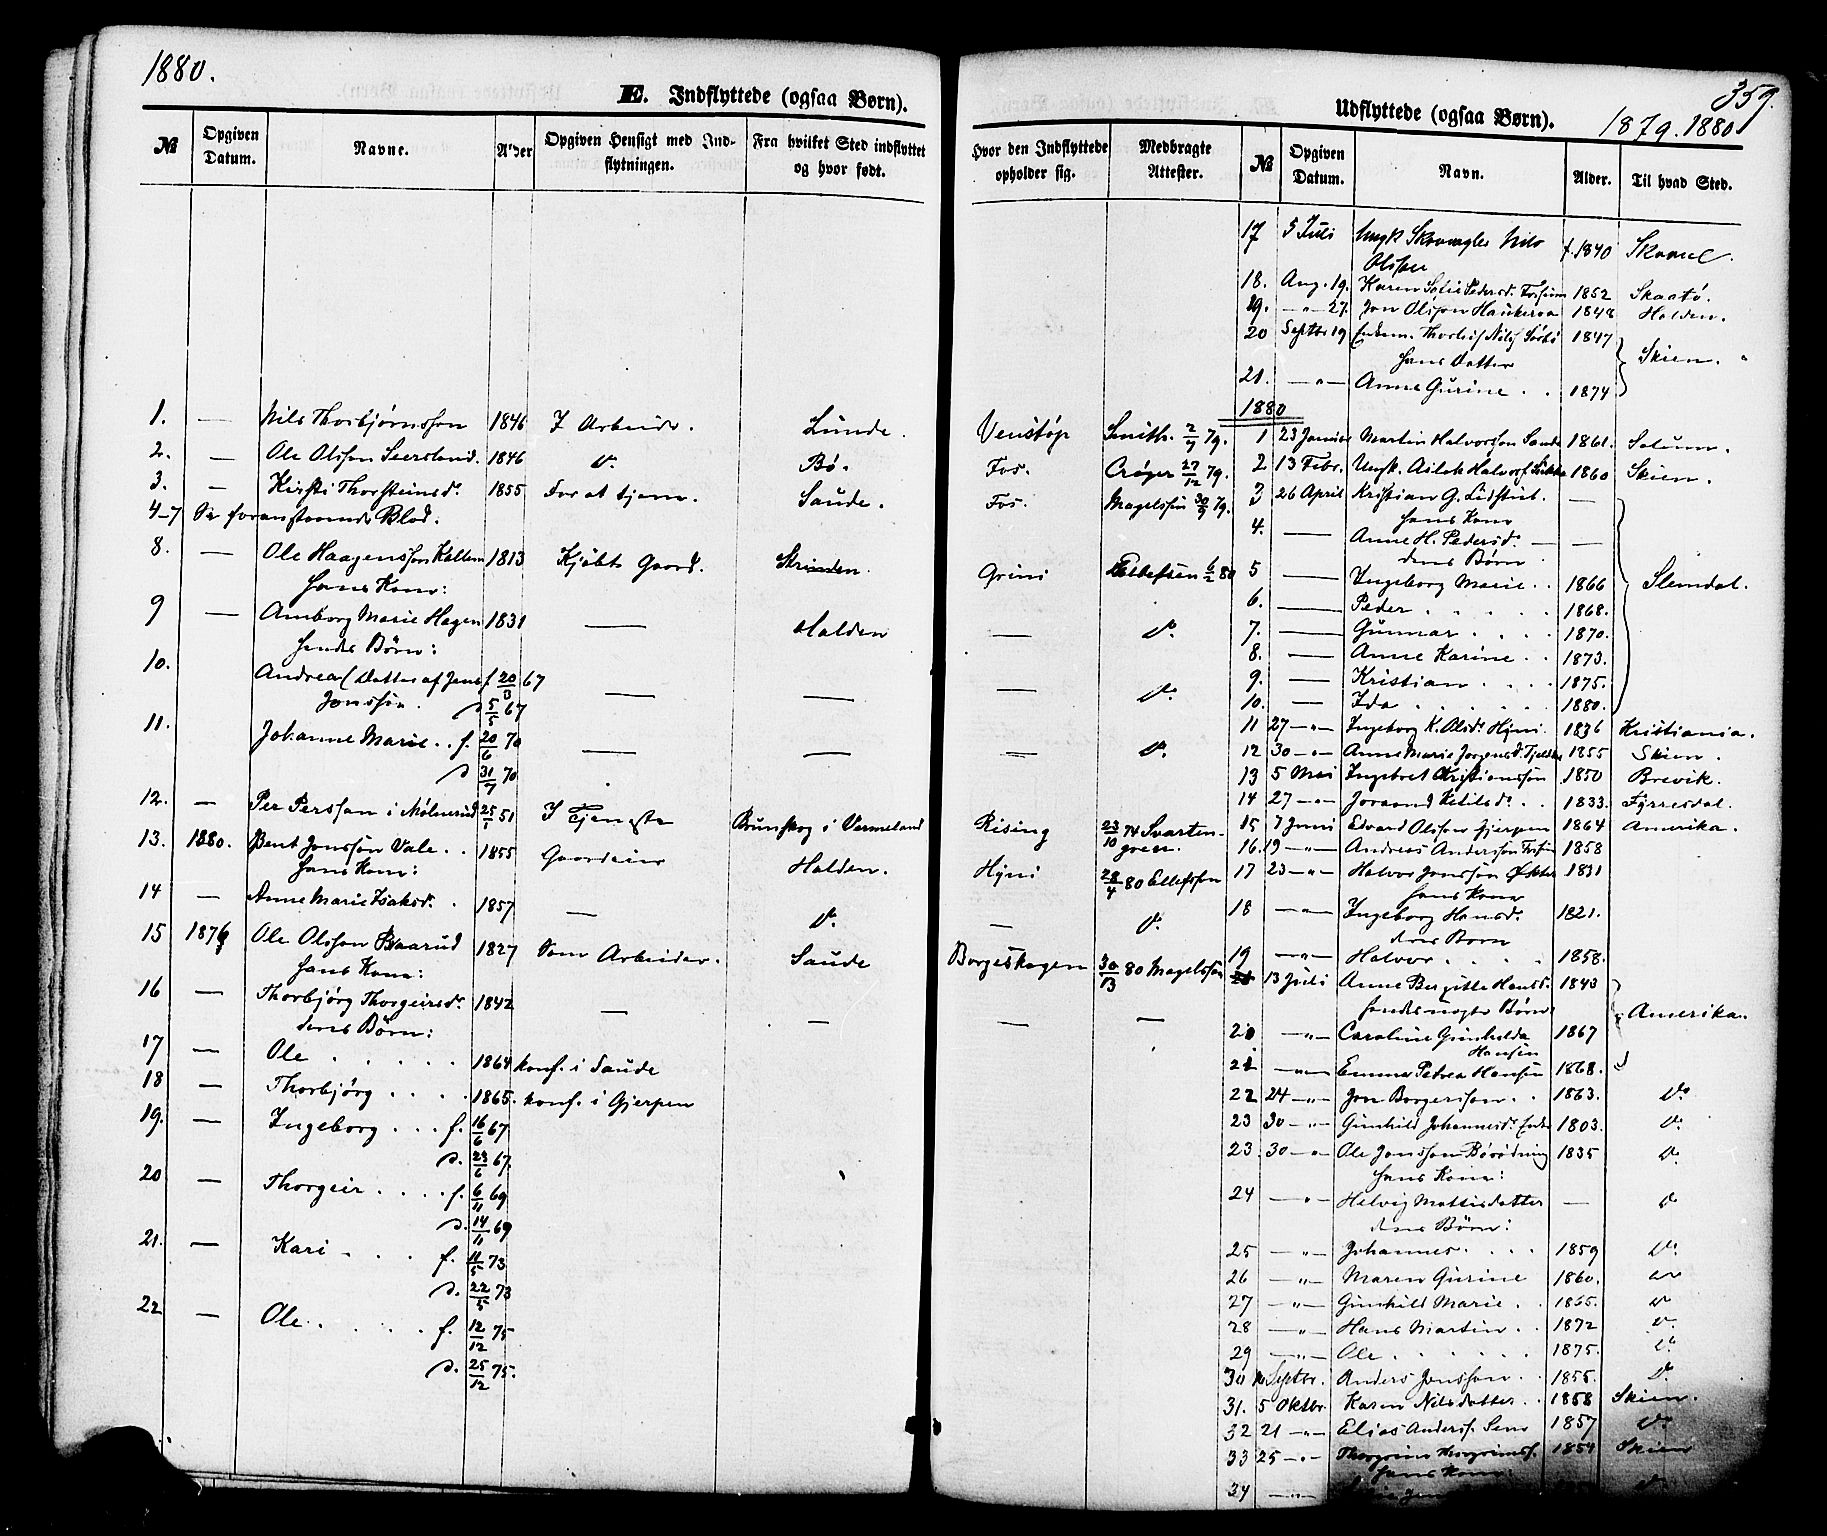 1880.
E. Indflyttede (ogsaa Børn).
№ Opgiven Datum. Navne. Alder Opgiven Hensigt med Indflytningen. Fra hvilket Sted indflyttet og hvor født.
1. — Nils Thorbjørnsson 1846 I Arbeide. Lunde.
2. — Ole Olsson Seersland. 1846 d. Bø.
3. — Kirsti Thorsteinsd. 1855 For at tjene. Saude.
4-7 Se foranstaaende Blad.
8. — Ole Haagensson 1813 Kjøbt Gaard.
hans Kone:
9 — Amborg Marie Hagen 1831 — Holden
hendes Børn:
10. Andrea (Datter af Jens f. 20/3 67 — —
Jonssøn. d 5/5 67
11. Johanne Marie . . f. 20/6 70 — —
d 31/7 70
12. — Per Persson i Mølnerud 51 I Tjeneste Brunskog i Vermeland
13. 1880. Bent Jonssøn Vale . . 1855 Gaardeier Holden.
hans Kone:
14 — Anne Marie Isaksd. . 1857 — d.
15 1879 Ole Olsson Baarud 1827 Som Arbeider. Saude
hans Kone:
16 — Thorbjørg Thorgeirsd. 1842 — —
deres Børn:
17 — Ole . . . . . 1864 konf. i Saude
18 — Thorbjørg . . . . 1865. konf. i Gjerpen
19. — Ingeborg . . . f. 16/6 67
d. 23/6 67.
20 — Thorgeir . . . . f. 6/11 69
d. 14/11 69
21. — Kari . . . . f. 11/5 73
d. 22/5 73
22 — Ole . . . . . f. 12/12 75
d. 25/12 75.
359.
Udflyttede (ogsaa Børn).
1879. 1880
Hvor den Indflyttede opholder sig. Medbragte Attester. № Opgiven Datum. Navn. Alder. Til hvad Sted.
17 5 Juli Ungk Nils f. 1840
Olssen
18. Aug. 19. Karen Sofie Pedersd. 1852 Skaatø.
19. — " — 27. Jon Olsson Haukeraa 1848 Holden.
20 Septbr 19 Enkem. Thorleif Nils 1847 Skien.
hans Datter
21. — " — Anne Gurine . . 1874
1880
Venstøp Smith. 2/7 79. 1 23 Januar Martin Halvorsson 1861. Solum.
Fos. Crøger 27/12 79. 2 13 Febr. Ungk. Aslak Halvors 1860 Skien.
Fos. Magelssen 30/9 79. 3 26 April Kristian G. —
hans Kone
4. — Anne H. Pedersd. — — Slemdal.
deres Børn
Grini Ellefsen 6/2 80 5 — Ingeborg Marie . . 1866
6. — Peder . . . . . 1868.
— d. 7. — Gunnar . . . . 1870.
8. — Anne Karine . . 1873.
— d. 9. — Kristian . . . . 1875.
10. — Ida . . . . . . 1880.
11 27 — " — Ingeborg K. Olsd. Hyni. 1836 Kristiania.
— d. 12 30 — " — Anne Marie Jørgensd. 1855 Skien.
13 5 Mai Ingebret Kristiansson 1850 Brevik.
14 27 — " — Joraand Ketilsd. . . 1833. Fyrresdal.
Rising 23/10 74 Svartengreen. 15 7 Juni Edvard Olsson Gjerpen 1864 Amerika.
16. 19 — " — Andreas Andersson 1858
Hyni 28/4 80 Ellefssen 17 23 — " — Halvor Jonssøn 1831
hans Kone
— d. 18 — " — Ingeborg Hansd. 1821.
deres Børn
Borgeskogen 30/13 80 Magelssøn 19 — " — Halvor . . . . . 1858.
13 Juli Anne Bergitte Hansd. 1843
hendes uægte Børn: Amerika.
— — 20 — " — Caroline Gunhilda 1867
Hansen
21 — " — Emma Petrea Hansen 1868.
22 24 — " — Jon Borgersson . . 1863. d.
23 30 — " — Gunhild Johannesd. Enke 1803. d.
23. 30 — " Ole Jonsson 1835 d.
hans Kone:
24 — " — Helvig Mattisdatter — d
deres Børn:
25 — " — Johannes . . . . 1859 d.
26 — " — Maren Gurine 1860. d
27 — " — Gunhild Marie . . 1865. d
28 — " — Hans Martin . . 1872 d.
29 — " — Ole . . . . . . 1875. d.
30 Septbr. Anders Jonsson . . 1855. d.
31. 5 Oktbr. Karen Nilsdatter . . 1858 Skien.
32 21 — " — Elias Anders. 1857 d.
33 25 — " — 1854 Skien
hans Kone:
34 — " — d.